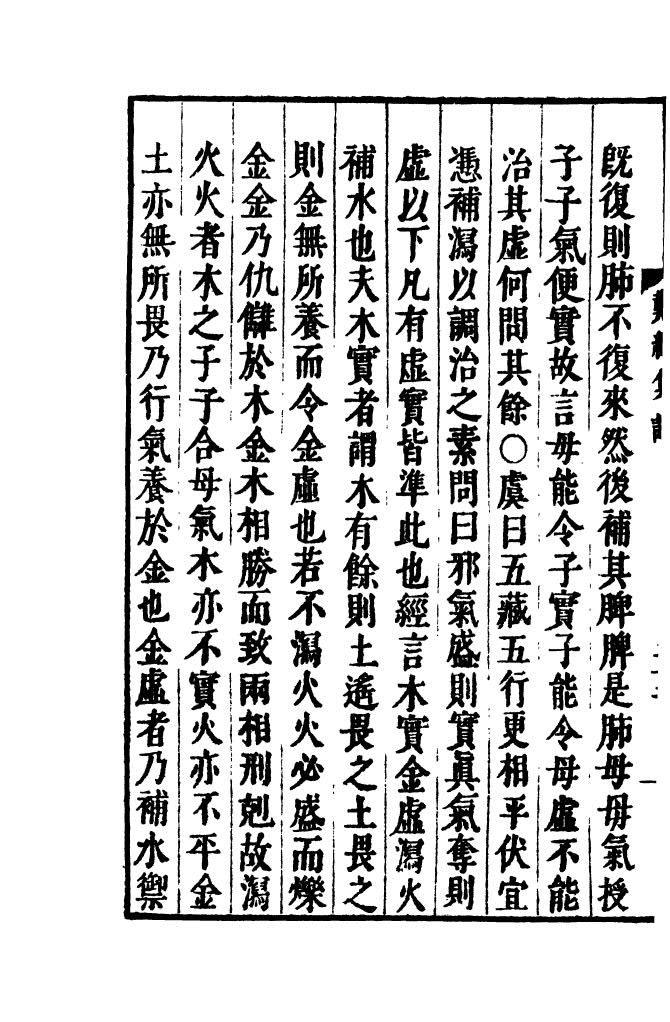 既復則肺不復來然後補其脾脾是肺母母氣授
子子氣便實故言母能令子實子能令母虛不能
治其虛何問其餘○虞曰五藏五行更相平伏宜
憑補瀉以調治之素問曰邪氣盛則實眞氣奪則
虛以下凡有虛實皆準此也經言木實金虛瀉火
補水也夫木實者謂木有餘則土遙畏之土畏之
則金無所養而令金虛也若不瀉火火必盛而爍
金金乃仇讎於木金木相勝而致兩相刑剋故瀉
火火者木之子子合母氣木亦不實火亦不平金
土亦無所畏乃行氣養於金也金虛者乃補水禦